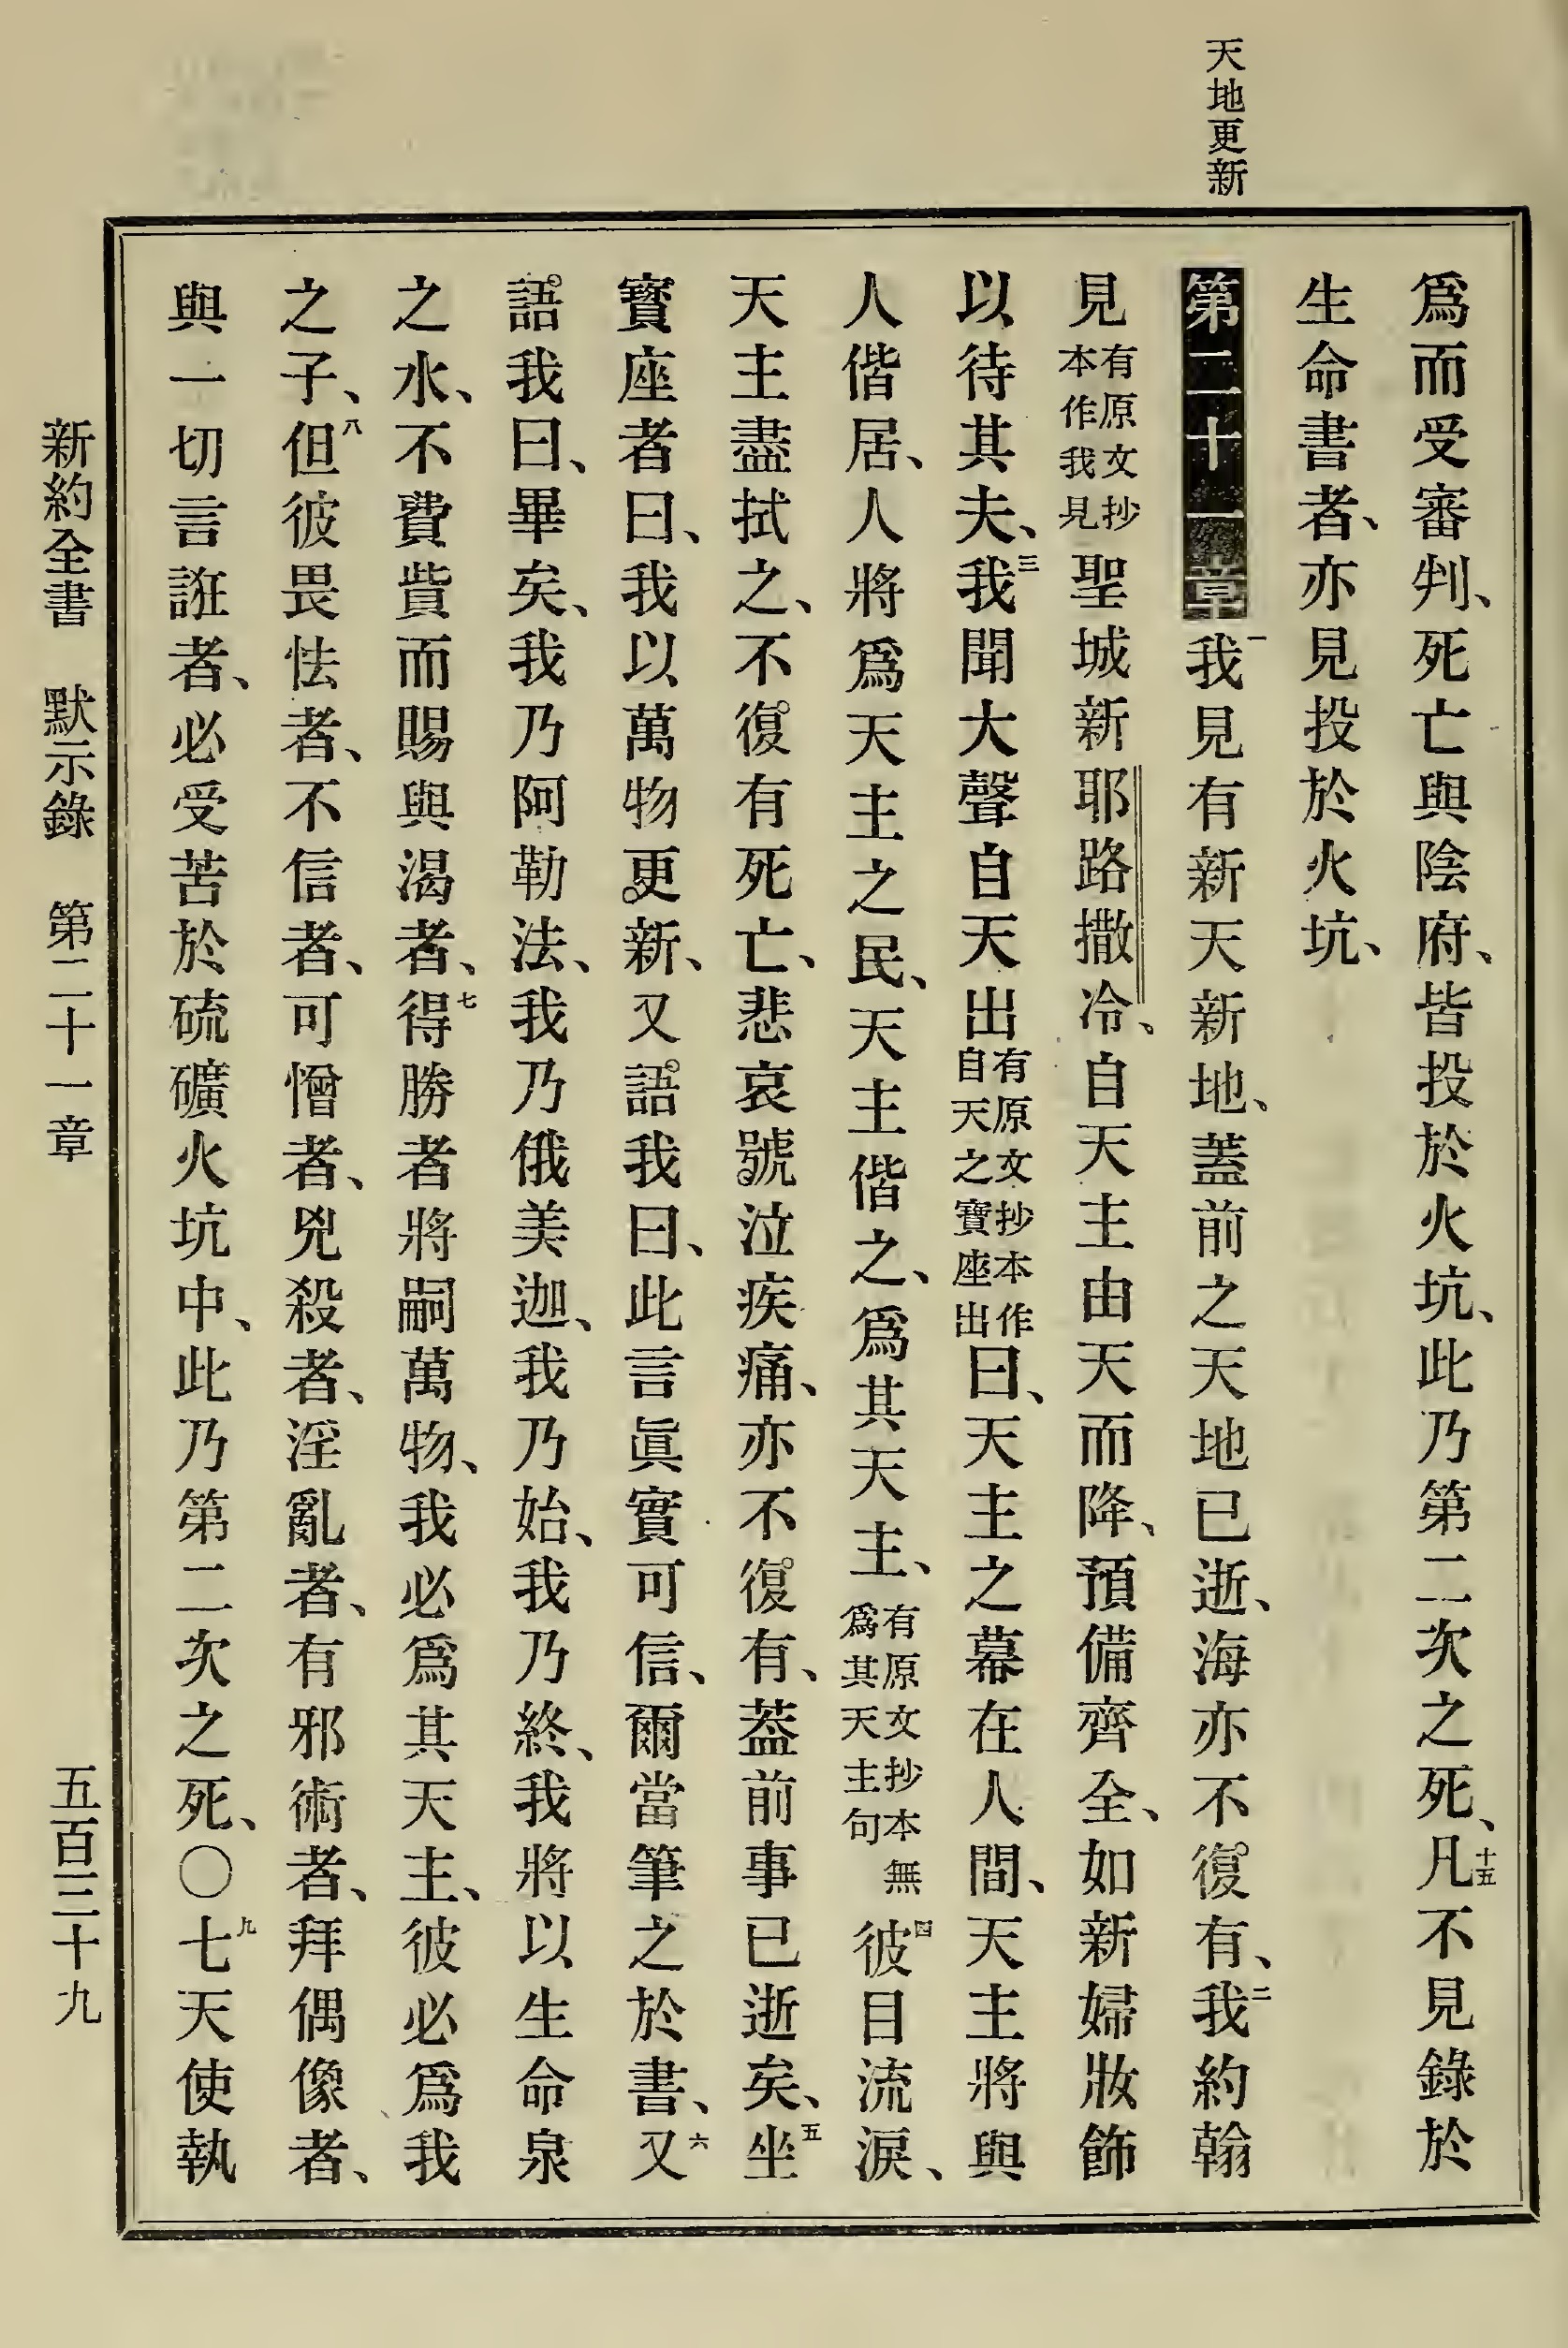 天地更新
爲而受審判、死亡與陰府、皆投於火坑、此乃第二次之死、十五凡不見錄於
生命書者、亦見投於火坑、
第二十一章 一我見有新天新地、蓋前之天地已逝、海亦不復有、二我約翰
見有原文抄本作我見聖城新耶路撒冷、自天主由天而降、預備齊全、如新婦妝飾
以待其夫、三我聞大聲自天出有原文抄本作自天之寶座出曰、天主之幕在人間、天主將與
人偕居、人將爲天主之民、天主偕之、爲其天主、有原文抄本無爲其天主句四彼目流淚、
天主盡拭之、不復有死亡、悲哀號泣疾痛、亦不復有、蓋前事已逝矣、五坐
寶座者曰、我以萬物更新、又語我曰、此言眞實可信、爾當筆之於書、六又
語我曰、畢矣、我乃阿勒法、我乃俄美迦、我乃始、我乃終、我將以生命泉
之水、不費貲而賜與渴者、七得勝者將嗣萬物、我必爲其天主、彼必爲我
之子、八但彼畏怯者、不信者、可憎者、兇殺者、淫亂者、有邪術者、拜偶像者、
與一切言誑者、必受苦於硫礦火坑中、此乃第二次之死、〇九七天使執
新約全書 默示錄 第二十一章 五百三十九